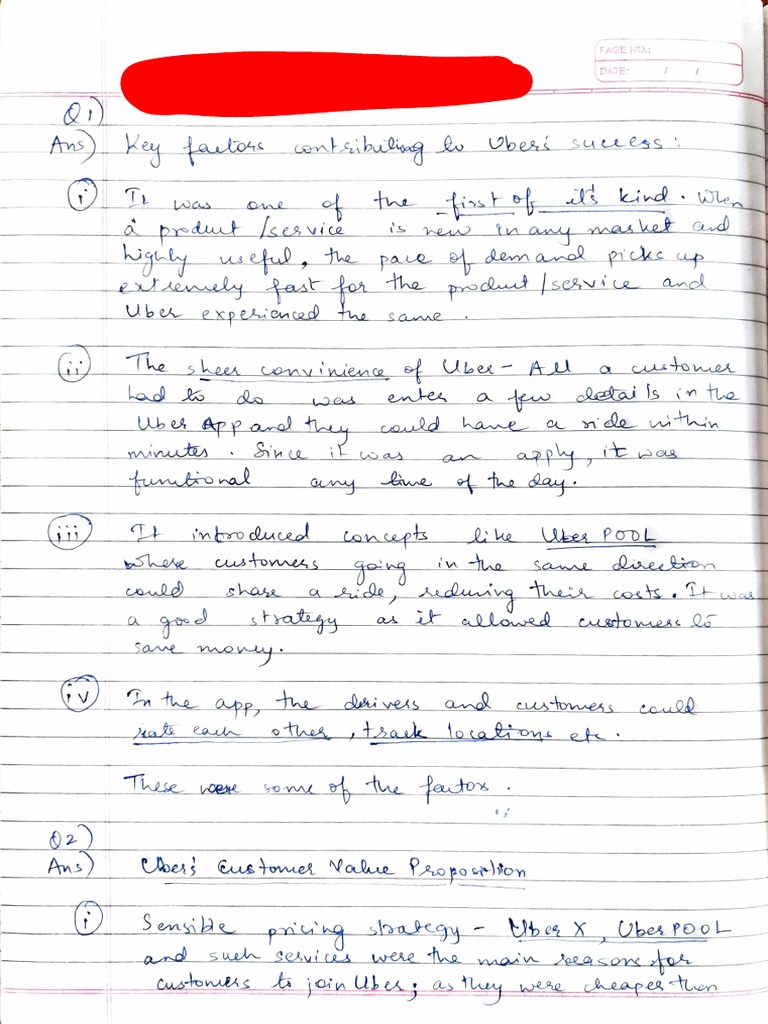 PAGE NO.:
DATE: / /
Q1)
Ans) Key factors contributing to Uber's success:
i) It was one of the first of it's kind. When
a product/service is new in any market and
highly useful, the pace of demand picks up
extremely fast for the product/service and
Uber experienced the same.
ii) The sheer convinience of Uber - All a customer
had to do was enter a few details in the
Uber App and they could have a ride within
minutes. Since it was an apply, it was
functional any time of the day.
iii) It introduced concepts like Uber POOL
where customers going in the same direction
could share a ride, reducing their costs. It was
a good strategy as it allowed customers to
save money.
iv) In the app, the drivers and customers could
rate each other, track locations etc.
These were some of the factors.
Q2)
Ans) Uber's Customer Value Proposition
i) Sensible pricing strategy - Uber X, Uber POOL
and such services were the main reasons for
customers to join Uber; as they were cheaper than